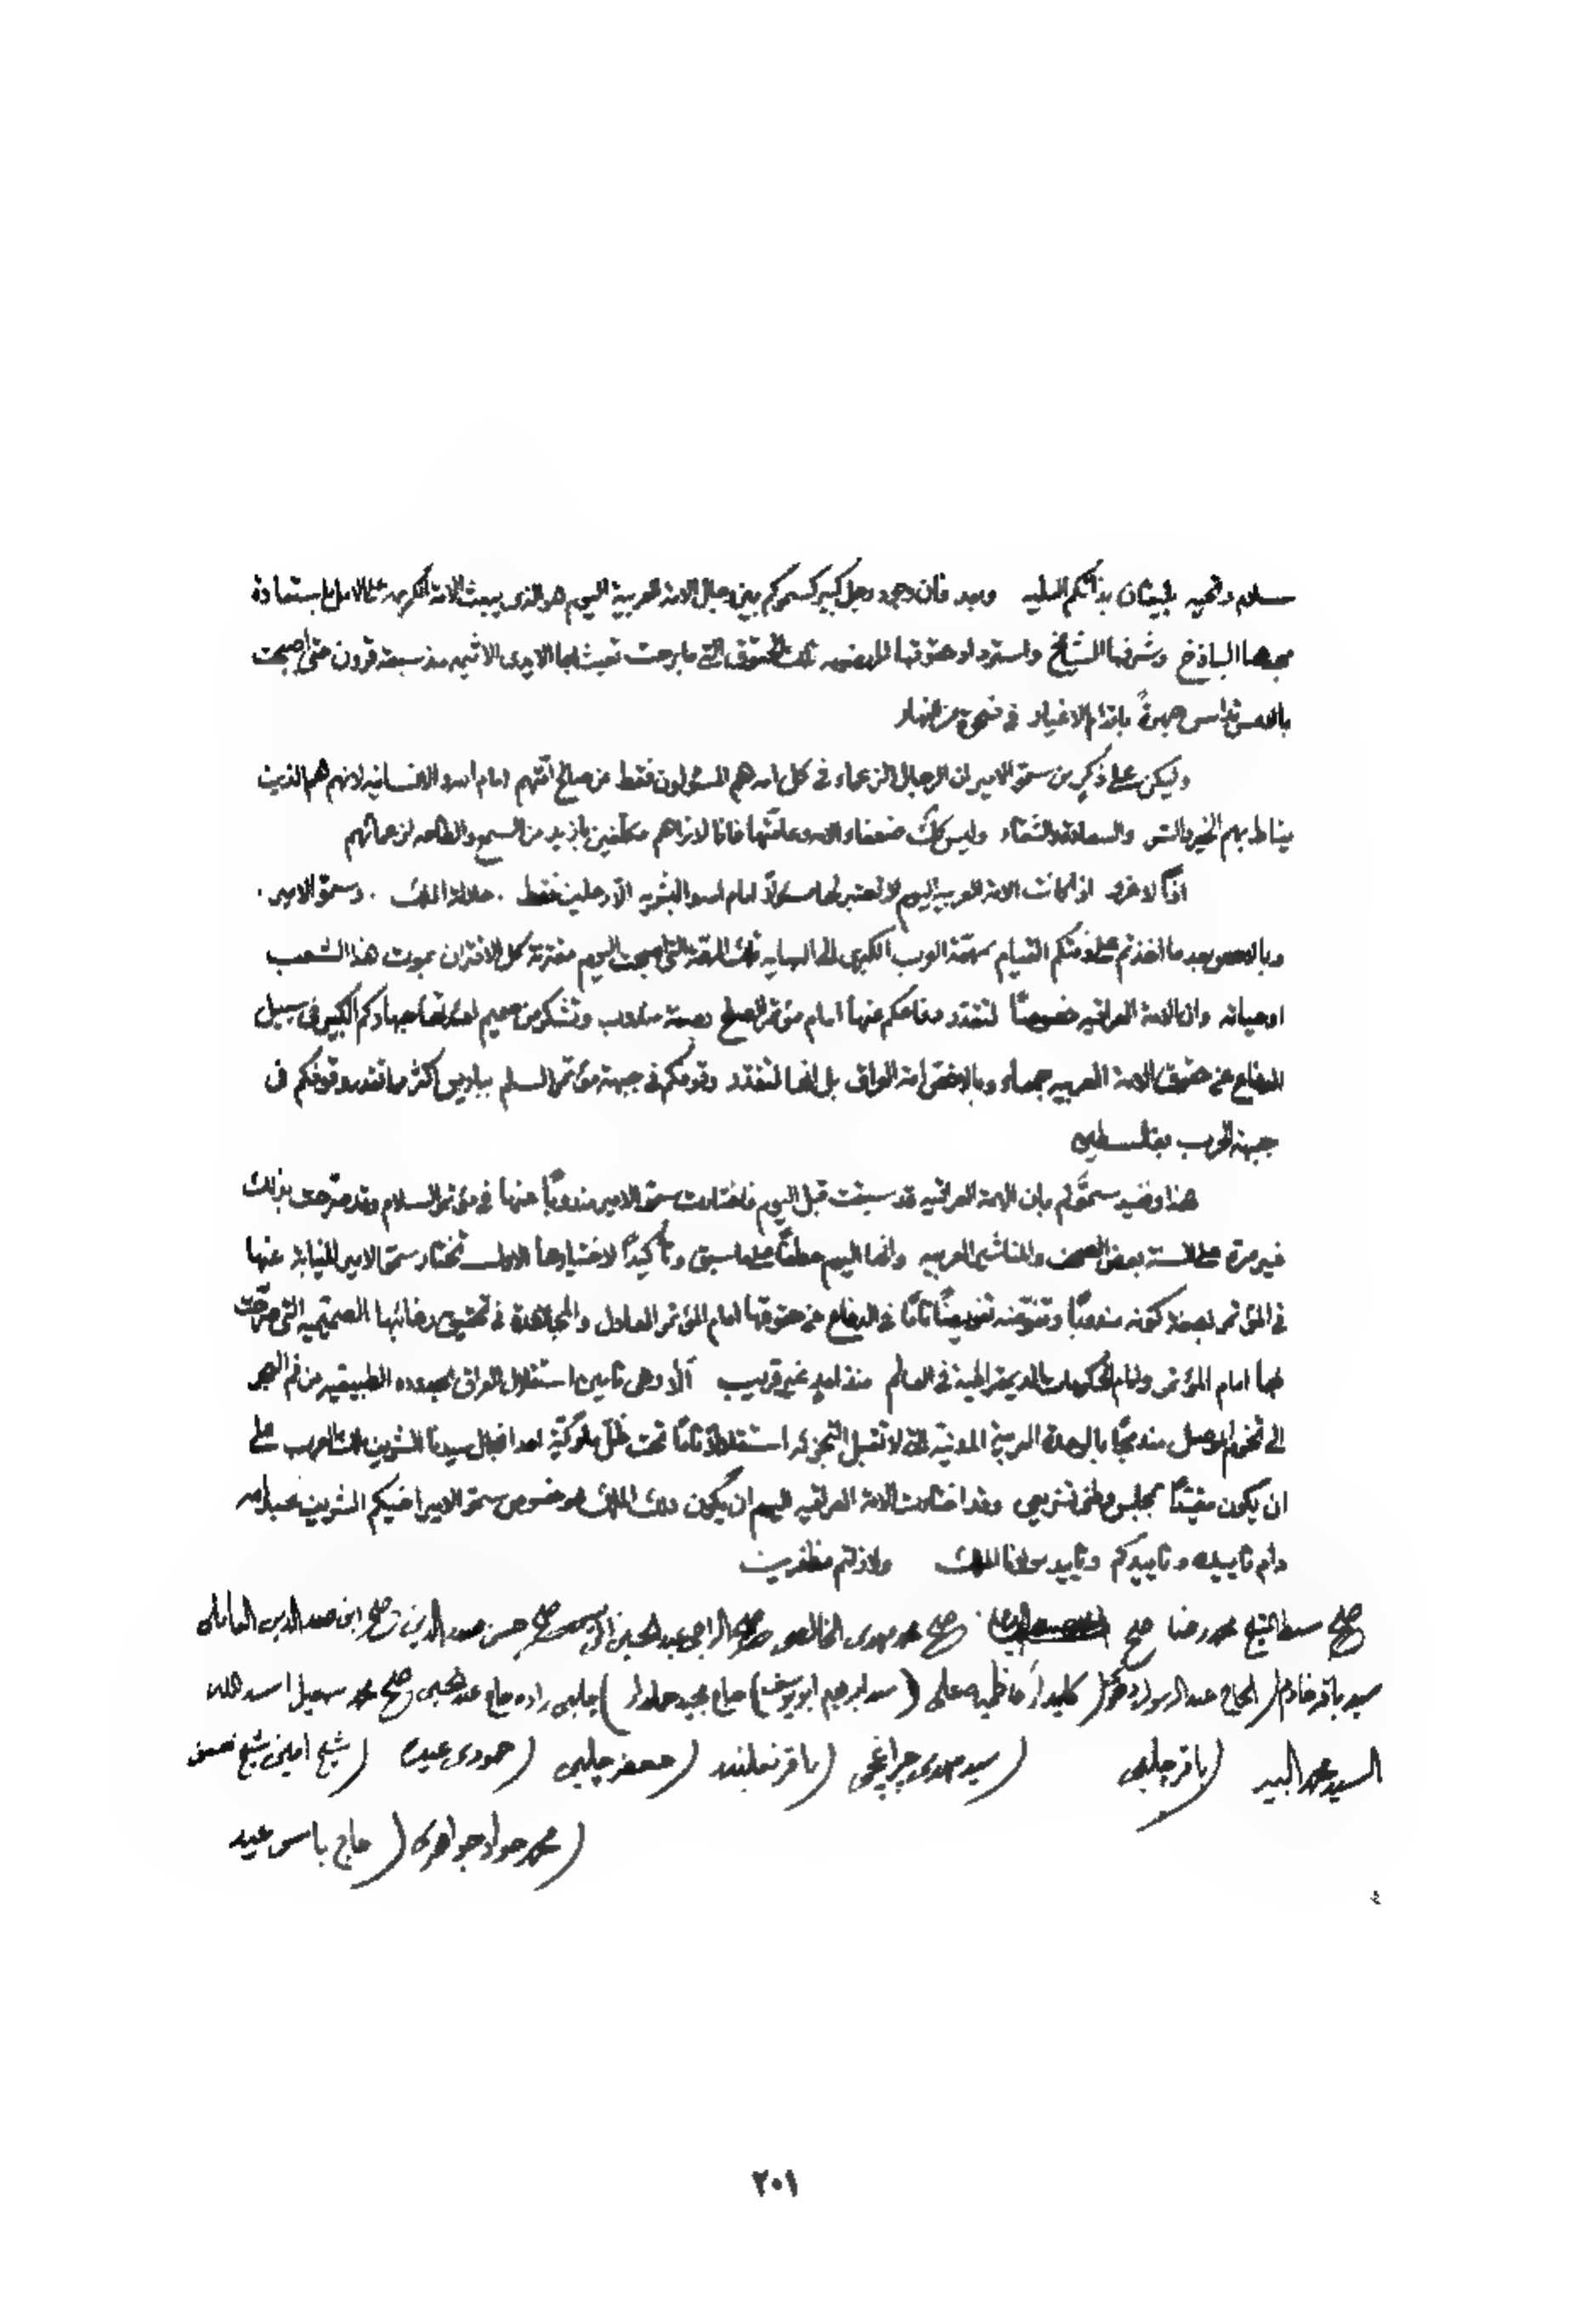 سلام وتحيه يليقان بذاتكم العليه وبعد فان وجود رجل كبير كسموكم بين رجال الامة العربية اليوم هو الذي يبعث الامة الكريمة على الامل باستعادة
مجدها الباذخ وشرفها الشامخ واسترداد حقوقها المهضومه تلك الحقوق التي ما برحت تعيث بها الايدي الاثيمه منذ سبعة قرون حتى اصبحت
بالامس تداس جهرةً باقدام الاغيار في ضحوة من النهار
وليكن على ذكر من سمو الامير ان الرجال الزعماء في كل امة هم المسؤلون فقط عن صالح امتهم امام اسرة الانسانيه لانهم هم الذين
يناط بهم الخير والشر والسعادة والشقاء وليس كذلك ضعفاء الامه وعامتها فانا لا نراهم مكلفين بازيد من السمع والطاعه لزعمائهم
اذاً لا غرو اذا كانت الامة العربية اليوم لا تعتبر لها مسئولاً امام اسرة البشريه الا رجلين فقط . جلالة الملك . وسمو الامير .
وبالاخص بعد ما اخذتم على ذمتكم القيام بمهمة العرب الكبرى تلك المهمة التي اصبحت اليوم مقترنة كل الاقتران بموت هذا الشعب
او حياته وان الامة العراقيه خصوصاً لتقدر دفاعكم عنها امام مؤتمر الصلح بصفة مندوب وتشكر من صميم افئدتها جهادكم الكبير في سبيل
الدفاع عن حقوق الامة العربيه جمعاء وبالاخص امة العراق بل انها لتقدر وقوفكم في جبهة مؤتمر السلم بباريس اكثر مما تقدر وقوفكم في
جبهة الحرب بفلسطين
هذا ونفيد سموكم بان الامة العراقيه قد سبقت قبل اليوم فاختارت سمو الامير مندوباً عنها في مؤتمر السلام وقد صرحت بذلك
غير مرة على السنة بعض الصحف والمناشير العربيه وانها اليوم عطفاً على ما سبق وتأكيداً لاختيارها الاول تختار سمو الامير للنيابة عنها
في المؤتمر بصفة كونه مندوباً وتفوضه تفويضاً تاماً في الدفاع عن حقوقها امام المؤتمر العادل والمجاهدة في تحقيق رغائبها الصميميه التي صرحت
بها امام المؤتمر وامام الحكومات الديمقراطية في العالم منذ امدٍ غير قريب ألا وهي تامين استقلال العراق بحدوده الطبيعيه من فم البحر
الى تخوم الموصل مندمجاً بالوحدة العربية المدنية التي لا تقبل التجزئه استقلالاً تاماً تحت ظل ملوكية احد انجال سيدنا الشريف ملك العرب على
ان يكون مقيداً بمجلس وطني تشريعي وقد اختارت الامة العراقيه اليوم ان يكون ذلك الملك هو خصوص سمو الامير اخيكم الشريف عبدالله
دام تاييده وتاييدكم وتاييد مولانا الملك ولا زلتم مظفرين
صح الشيخ محمد رضا صح صح محمد مهدي الخالصي صح الراجي عبد الحسين صح حسن صدر الدين صح ابن صدر الدين العاملي
سيد باقر خادم ( الحاج عبد الرسول ( كليدار كاظميه علي ( سيد ابراهيم ابو يوسف ) حاج مجيد ) چلبي زاده حاج عبد الحسين صح محمد اسد الله
السيد محمد السيد ( باقر چلبي ( سيد مهدي چراغچي ( باقر نعلبند ( جعفر چلبي ( حمودي عبد ( شيخ امين شيخ
( محمد جواد جواهري ( حاج ياس عبد
٢٠١